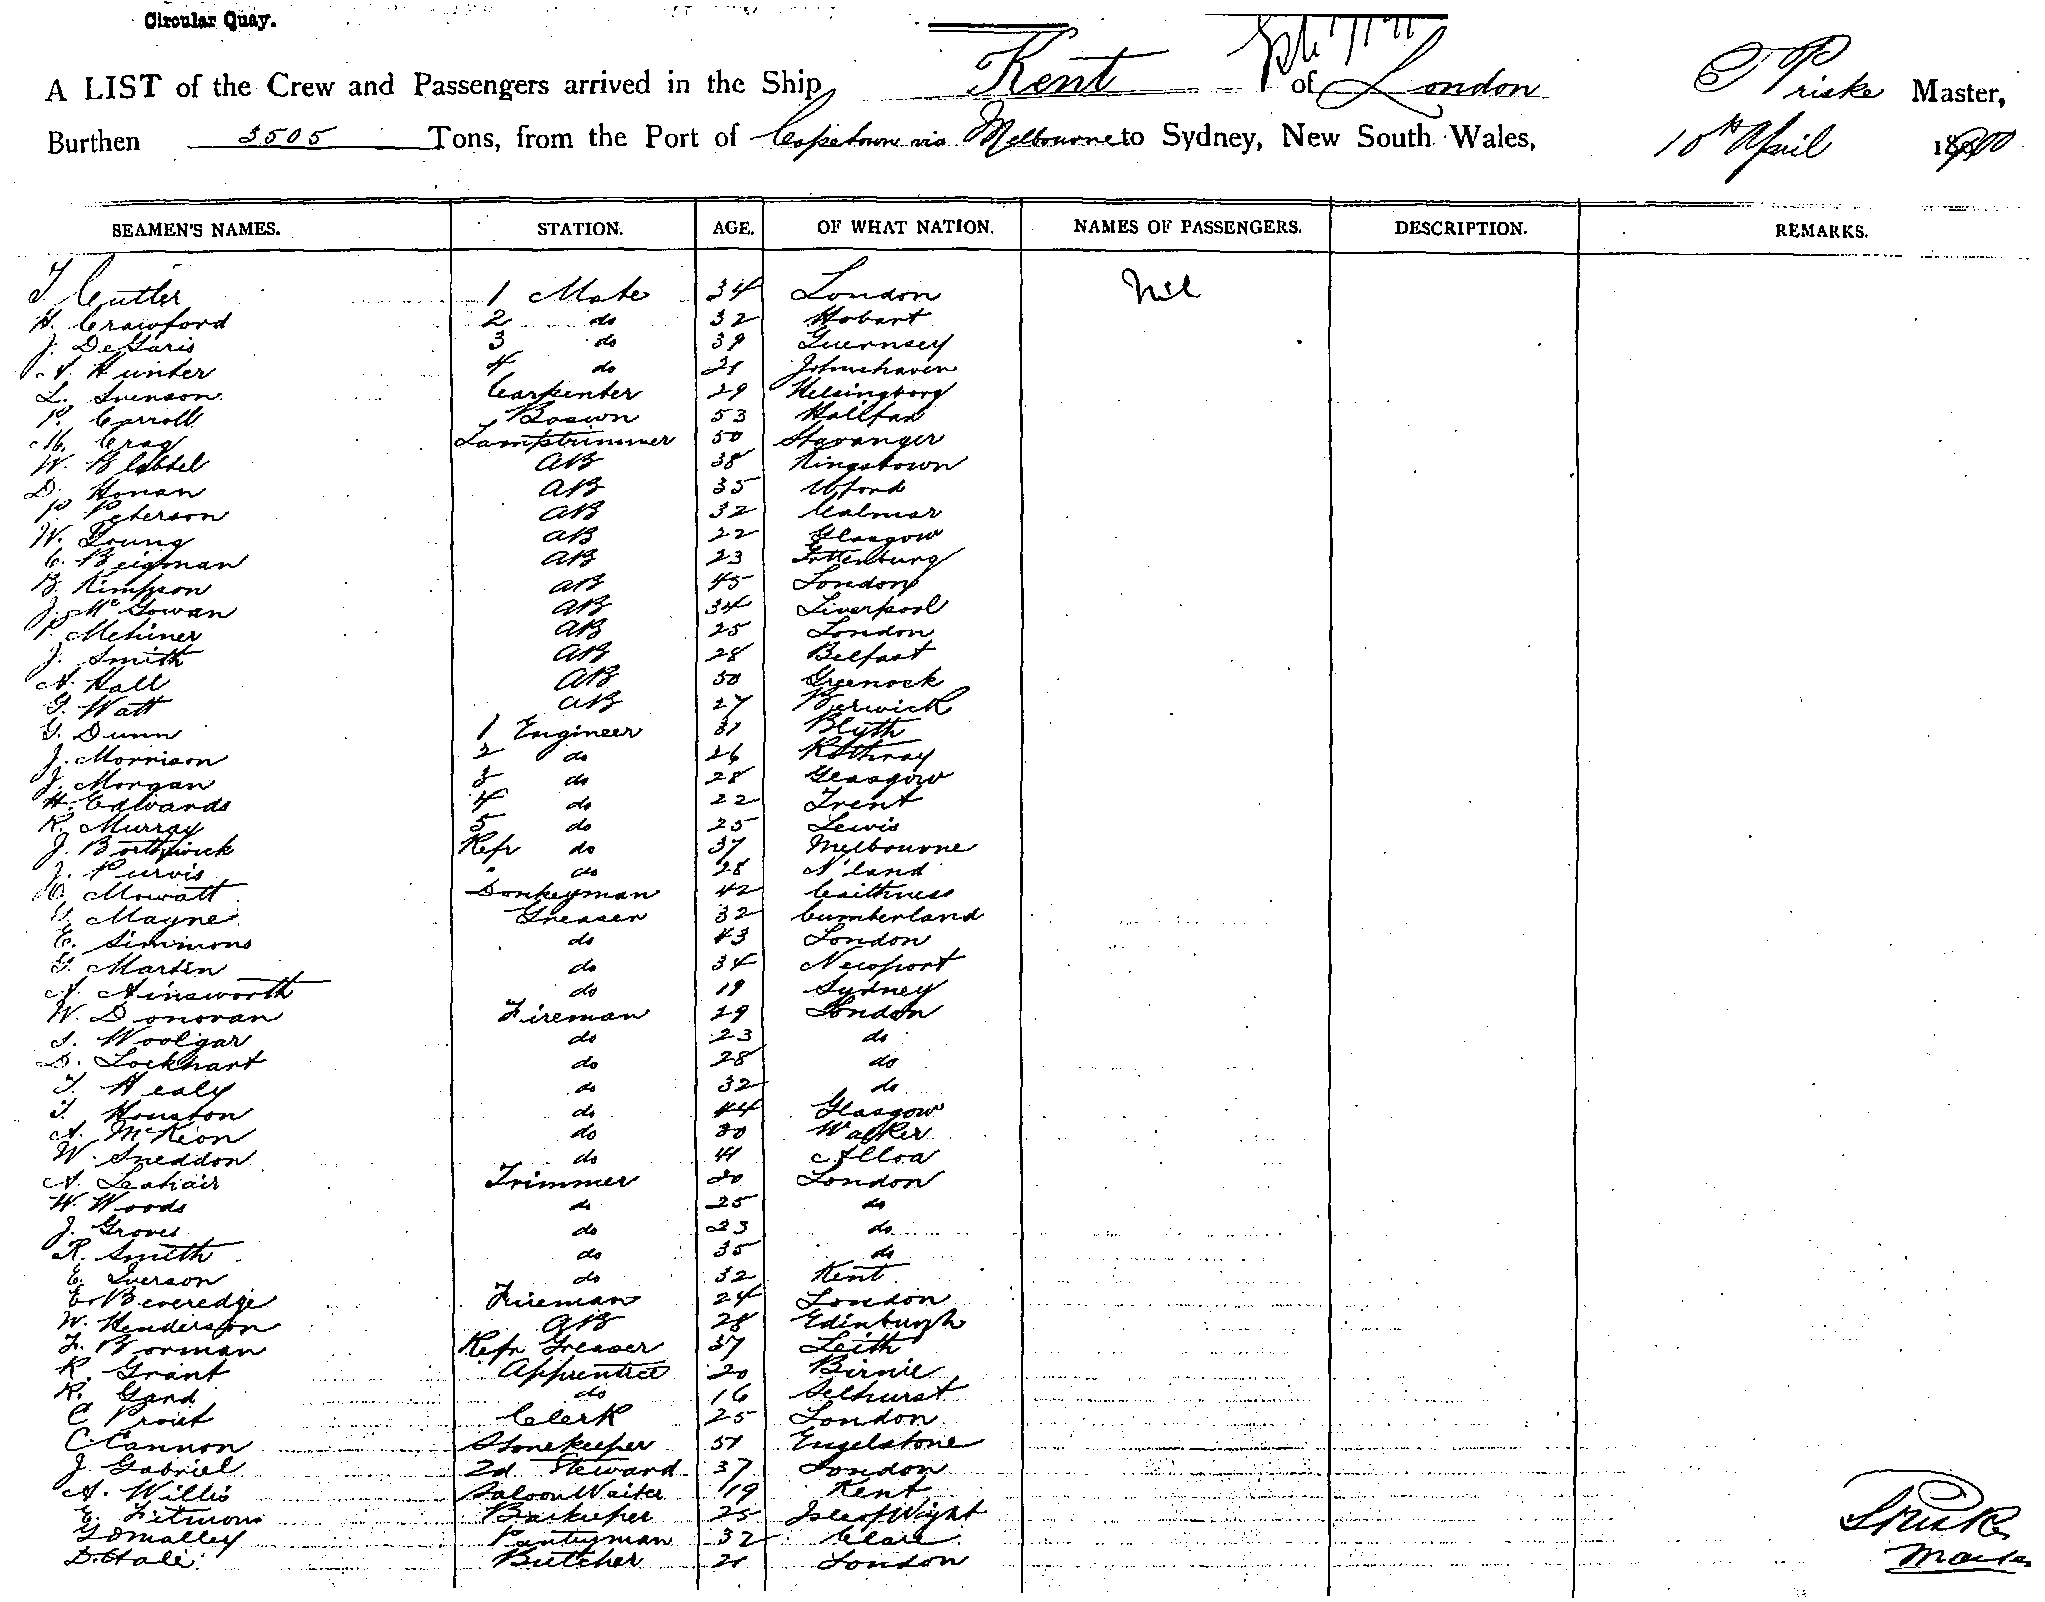 Circular Quay.
A LIST of the Crew and Passengers arrived in the Ship Kent of London T Priske Master,
Burthen 3505 Tons, from the Port of Capetown via Melbourne to Sydney, New South Wales, 10th April 1900
SEAMEN'S NAMES. STATION. AGE. OF WHAT NATION. NAMES OF PASSENGERS. DESCRIPTION. REMARKS.
T Cutler 1 Mate 34 London Nil
H. Crawford 2 do 32 Hobart
J. DeGaris 3 do 39 Guernsey
A. Hunter 4 do 21 Johnshaven
L. Svenson 29 Carpenter Helsingborg
P. Carroll Boswn 53 Halifax
M. Crag Lamptrimmer 50 Stavanger
W. AB 38 Kingstown
D. Honan AB 35
P. Peterson AB 32 Calmar
W. Young AB 22 Glasgow
C. Beigman AB 23 Gottenburg
B. Kimpson AB 45 London
J. McGowan AB 34 Liverpool
AB 25 London
J. Smith AB 28 Belfast
A. Hall AB 50 Greenock
G. Watt AB 27 Berwick
G. Dunn 1 Engineer 31 Blyth
J. Morrison 2 do 26 Rothsay
J. Morgan 3 do 28 Glasgow
H. Edwards 4 do 22 Trent
R. Murray 5 do 25 Lewis
J. Borthwick Refr do 37 Melbourne
J. Purvis " do 28 N'land
Mowatt Donkeyman 42 Caithness
Mayne Greaser 32 Cumberland
E. Simmons do 43 London
G. Martin do 34 Newport
A. Ainsworth do 19 Sydney
W. Donovan Fireman 29 London
J. Woolgar do 23 do
D. Lockhart do 28 do
T. Healy do 32 do
T. Houston do 44 Glasgow
A. McKeon do 30 Walker
W. Sneddon do 41 Alloa
A. Leahair Trimmer 20 London
W. Woods do 25 do
J. Groves do 23 do
R. Smith do 35 do
E. Iverson do 32 Kent
E. Beveredge Fireman 24 London
W. Henderson AB 28 Edinburgh
F. Worman Refr Greaser 37 Leith
R. Grant Apprentice 20 Birnie
R. Gand do 16 Selhurst
C Clerk 25 London
C. Cannon Storekeeper 51 Engelstone
J. Gabriel 2d Steward 37 London
A. Willis Saloon Waiter 19 Kent
E. Barkeeper 25 Isle of Wight
G OMalley Pantryman 32 Clare
D. Hale Butcher 21 London
T Priske
Master